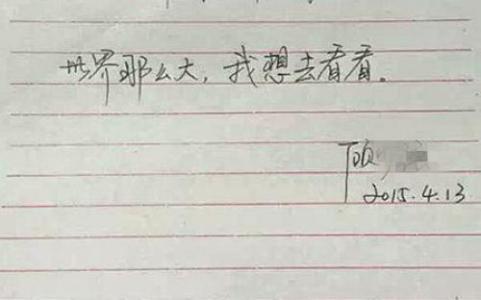 世界那么大，我想去看看。
顾
2015.4.13